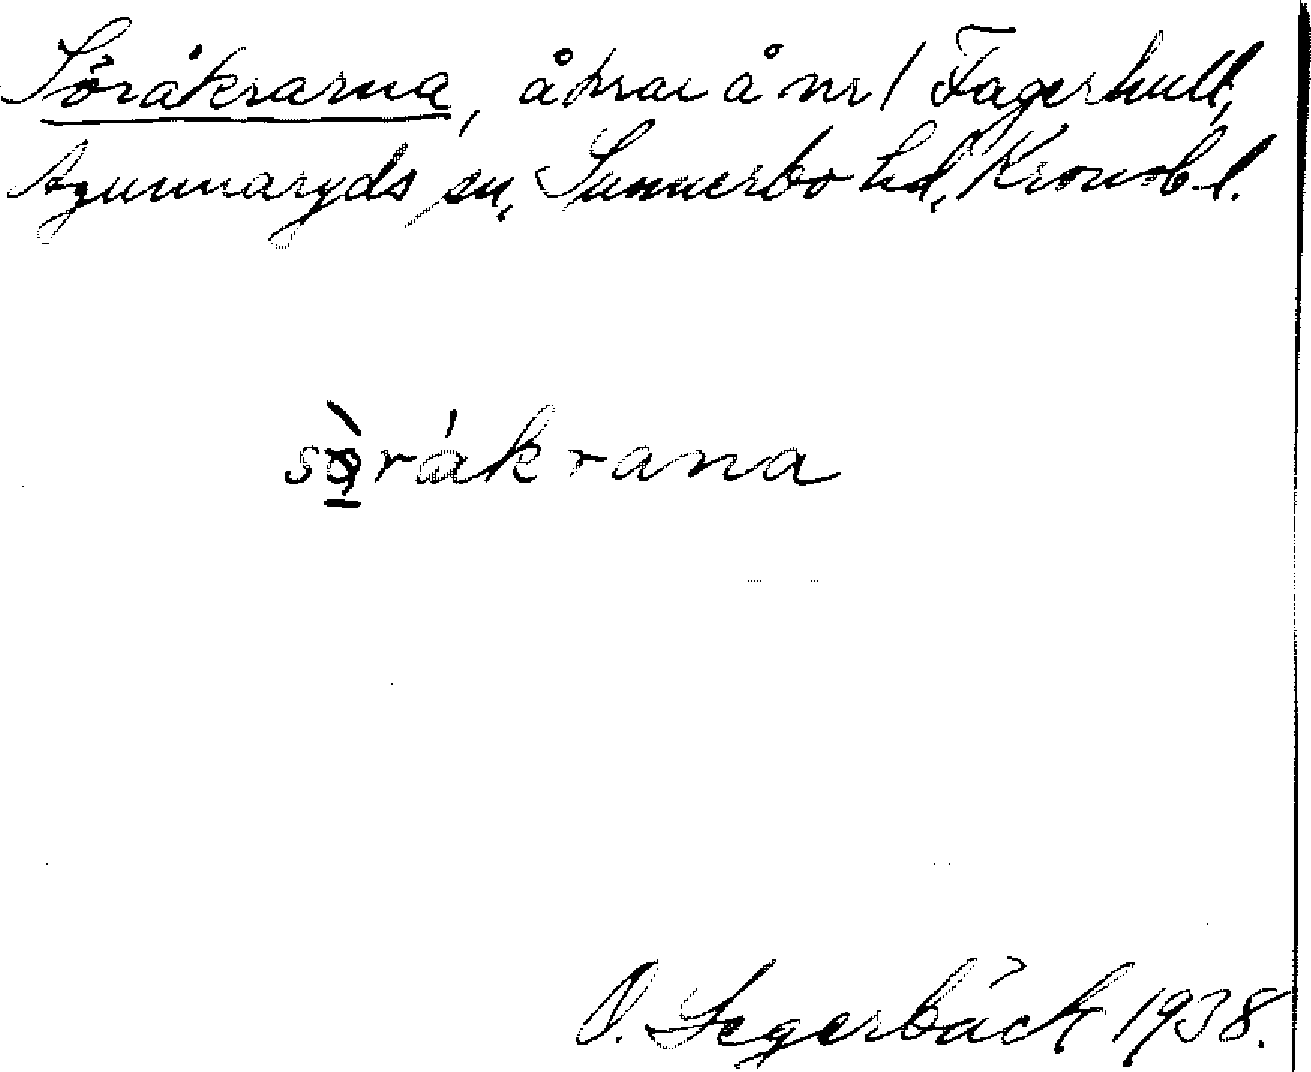 Söråkrarna, åkrar å nr 1 Fagerhult,
Agunnaryds sn, Sunnerbo hd, Kronob l.
sø̀rákrana
O. Segerbäck 1938.